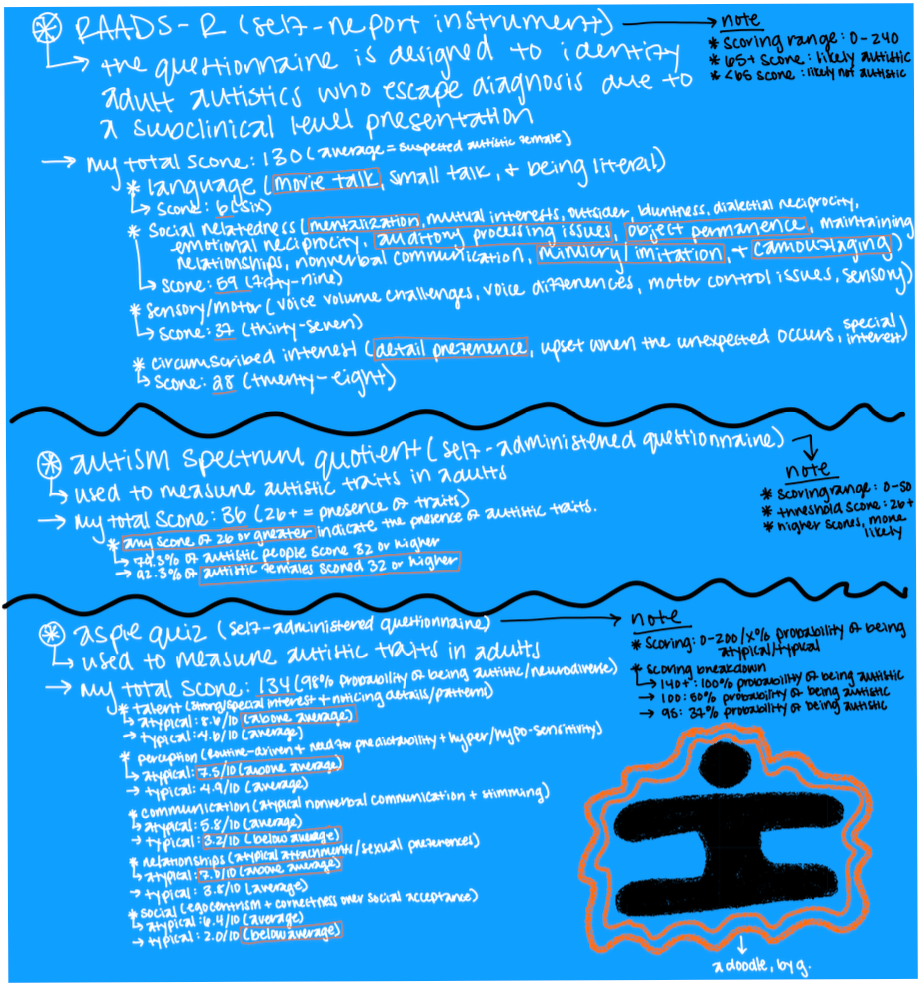 RAADS-R (self-report instrument)
note
* scoring range: 0-240
* 65+ score: likely autistic
* <65 score: likely not autistic
the questionnaire is designed to identify
adult autistics who escape diagnosis due to
a subclinical level presentation
→ my total score: 130 (average = suspected autistic female)
* language (movie talk, small talk, + being literal)
score: 6 (six)
* social relatedness (mentalization, mutual interests, outsider, bluntness, dialectial reciprocity,
emotional reciprocity, auditory processing issues, object permanence, maintaining
relationships, nonverbal communication, mimicry/imitation, + camouflaging)
score: 59 (fifty-nine)
* sensory/motor (voice volume challenges, voice differences, motor control issues, sensory)
score: 37 (thirty-seven)
* circumscribed interest (detail preference, upset when the unexpected occurs, special interest)
score: 28 (twenty-eight)
autism spectrum quotient (self-administered questionnaire)
used to measure autistic traits in adults
note
* scoring range: 0-50
* threshold score: 26+
* higher scores, more
likely
→ my total score: 36 (26+ = presence of traits)
* any score of 26 or greater indicate the presence of autistic traits.
→ 79.3% of autistic people score 32 or higher
→ 92.3% of autistic females scored 32 or higher
aspie quiz (self-administered questionnaire)
used to measure autistic traits in adults
note
* scoring: 0-200/x% probability of being
atypical/typical
* scoring breakdown
→ 140+: 100% probability of being autistic
→ 100: 50% probability of being autistic
→ 95: 37% probability of being autistic
→ my total score: 134 (98% probability of being autistic/neurodiverse)
* talent (strong/special interest + noticing details/patterns)
→ atypical: 8.6/10 (above average)
→ typical: 4.6/10 (average)
* perception (routine-driven + need for predictability + hyper/hypo-sensitivity)
→ atypical: 7.5/10 (above average)
→ typical: 4.9/10 (average)
* communication (atypical nonverbal communication + stimming)
→ atypical: 5.8/10 (average)
→ typical: 3.2/10 (below average)
* relationships (atypical attachments/sexual preferences)
→ atypical: 7.0/10 (above average)
→ typical: 3.8/10 (average)
* social (egocentrism + correctness over social acceptance)
→ atypical: 6.4/10 (average)
→ typical: 2.0/10 (below average)
a doodle, by g.